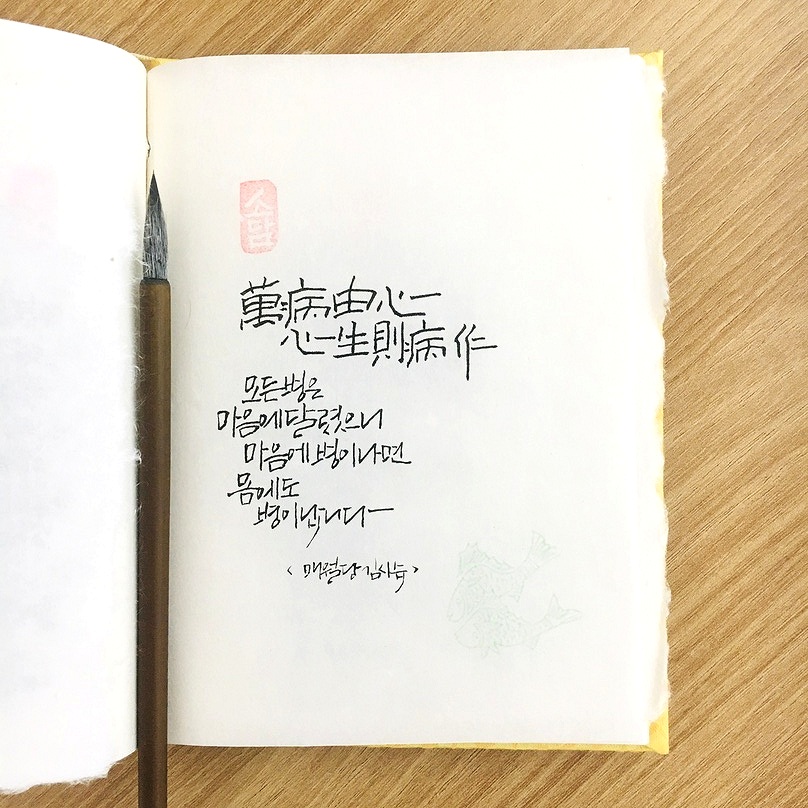 소담
萬病由心
心生則病作
모든 병은
마음에 달렸으니
마음에 병이 나면
몸에도
병이 납니다
< 매월당 김시습 >